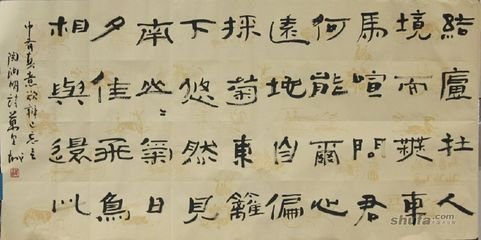 結廬在人
境而無車
馬喧問君
何能爾心
遠地自偏
採菊東籬
下悠然見
南山〻氣日
夕佳飛鳥
相與還此
中有真意欲辨已忘言
陶淵明詩
shufa.com